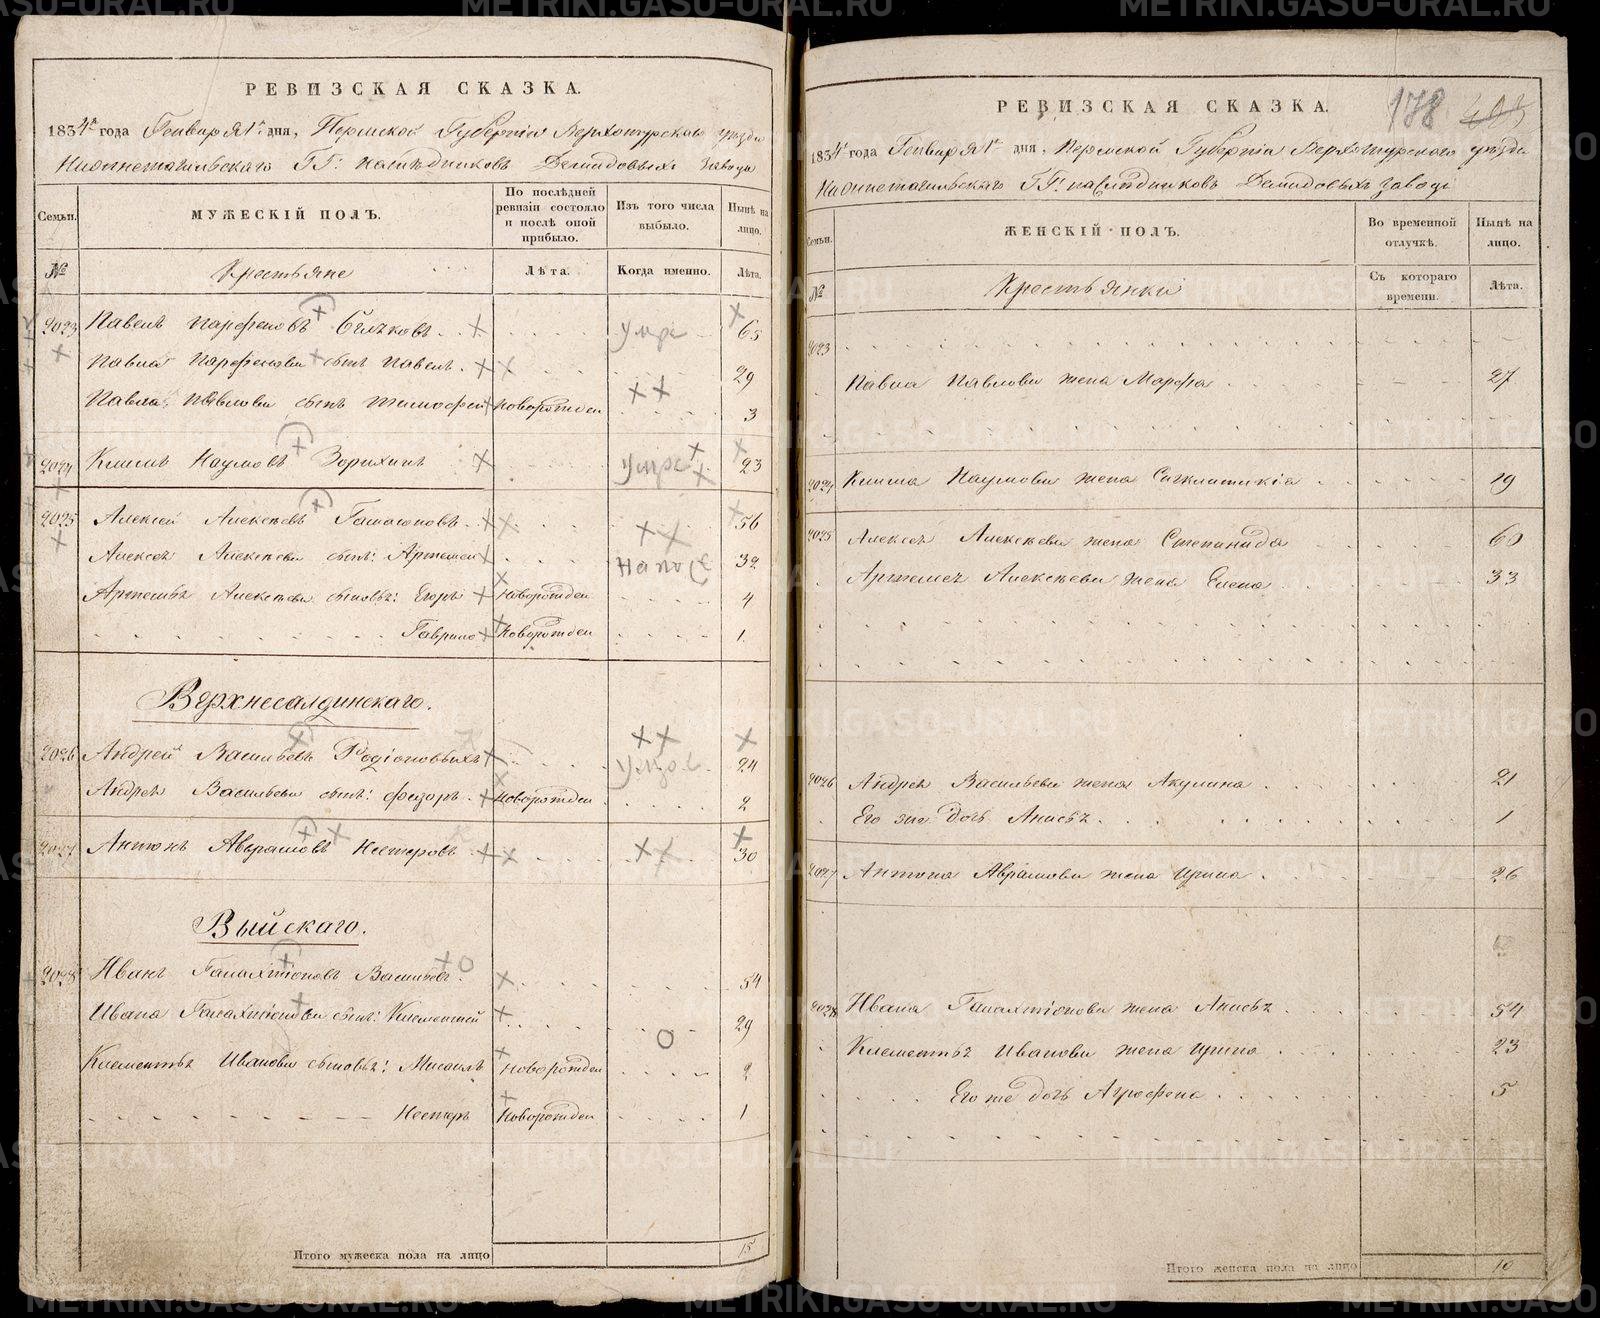 РЕВИЗСКАЯ СКАЗКА.
1834го года Генваря 1го дня, Пермской Губерніи Верхотурскаго уезда
Нижнетагильскаго ГГ: наследниковъ Демидовыхъ завода
Семьи.
МУЖЕСКІЙ ПОЛЪ.
По послѣдней ревизіи состояло и послѣ оной прибыло.
Изъ того числа выбыло.
Нынѣ на лицо.
№
Крестьяне
Лѣта.
Когда именно.
Лѣта.
2023 Павелъ Парфеновъ Бѣлковъ умре 65
Павла Парфенова сынъ Павелъ 29
Павла Павлова сынъ Тимофей Новорожден 3
2024 Климъ Наумовъ Зорихинъ умре 23
2025 Алексей Алексѣевъ 56
Алексея Алексѣева сынъ: Артемей 32
Артемья Алексѣева сыновья: Егоръ Новорожден 4
Гаврило Новорожден 1.
Верхнесалдинскаго.
2026 Андрей Васильевъ Родіоновыхъ 24
Андрея Васильева сынъ: Федоръ Новорожден 2
2027 Антонъ Аврамовъ Нестеровъ 30
Выйскаго.
2028 Иванъ Галахтіоновъ Васильевъ 54
Ивана Галахтіонова сынъ: Клементей 29
Клементья Иванова сыновья: Мисаилъ Новорожден 2
Несторъ Новорожден 1
Итого мужеска пола на лицо 15
РЕВИЗСКАЯ СКАЗКА.
178
1834го года Генваря 1го дня, Пермской Губерніи Верхотурскаго уезда
Нижнетагильскаго ГГ: наследниковъ Демидовыхъ завода
Семьи.
ЖЕНСКІЙ ПОЛЪ.
Во временной отлучкѣ.
Нынѣ на лицо.
№
Крестьянки
Съ котораго времени.
Лѣта.
2023
Павла Павлова жена Марфа 27
2024 Клима Наумова жена Сигклитикія 19
2025 Алексея Алексѣева жена Степанида 60
Артемья Алексѣева жена Елена 33
2026 Андрея Васильева жена Акулина 21
Его же дочь Анисья 1
2027 Антона Аврамова жена Ирина 26
2028 Ивана Галахтіонова жена Анисья 54
Клементья Иванова жена Ирина 23
Его же дочь Агрофена 5
Итого женска пола на лицо 10
METRIKI.GASO-URAL.RU